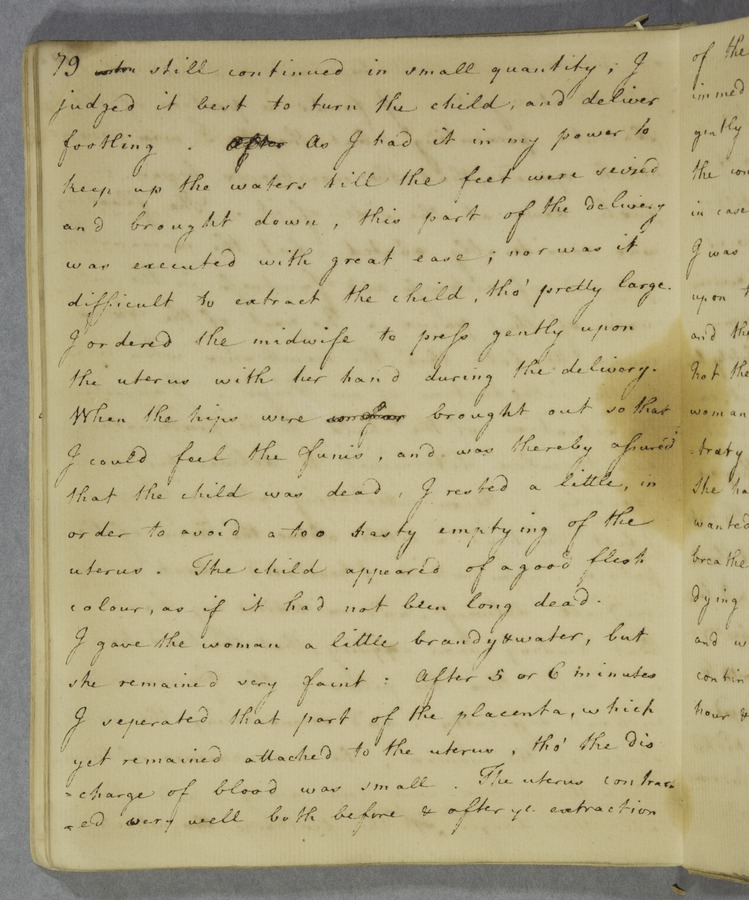 79 still continued in small quantity; I
judged it best to turn the child, and deliver
footling. After As I had it in my power to
keep up the waters till the feet were seized
and brought down, this part of the delivery
was executed with great ease; nor was it
difficult to extract the child, tho' pretty large.
I ordered the midwife to press gently upon
the uterus with her hand during the delivery.
When the hips were brought out so that
I could feel the funis, and was thereby assured
that the child was dead, I rested a little, in
order to avoid a too hasty emptying of the
uterus. The child appeared of a good flesh
colour, as if it had not been long dead.
I gave the woman a little brandy & water, but
she remained very faint: After 5 or 6 minutes
I seperated that part of the placenta, which
yet remained attached to the uterus, tho' the dis
-charge of blood was small. The uterus contract
-ed very well both before & after ye. extraction
of the
immed
gently
the
in case
I was
upon
and the
not the
woman
-traty
she ha
wanted
breathe
dying
and w
contin
hour &